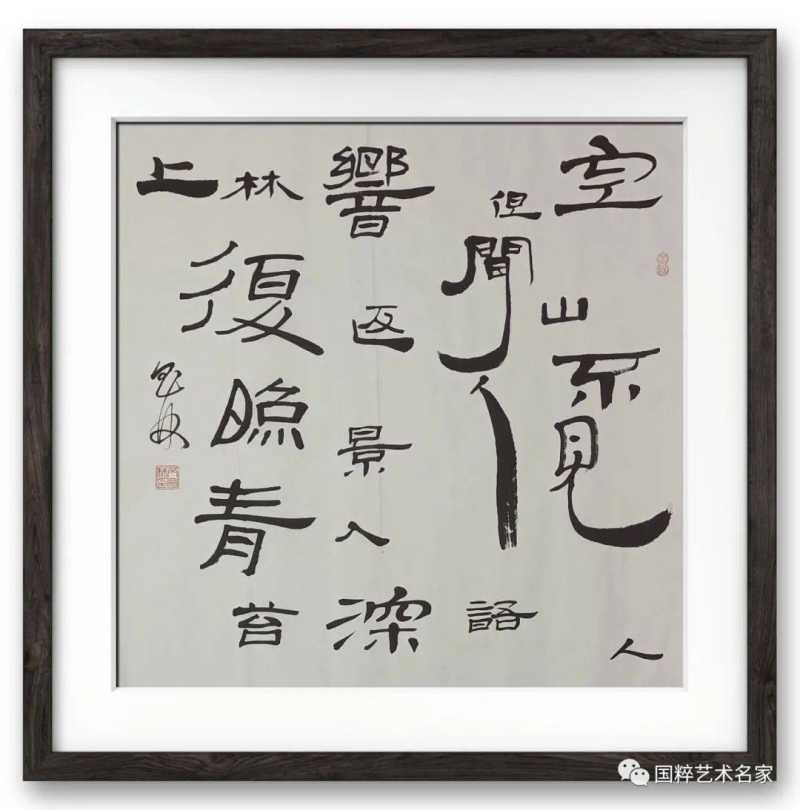 空山不見人
但聞人語
響返景入深
林復照青苔
上
国粹艺术名家